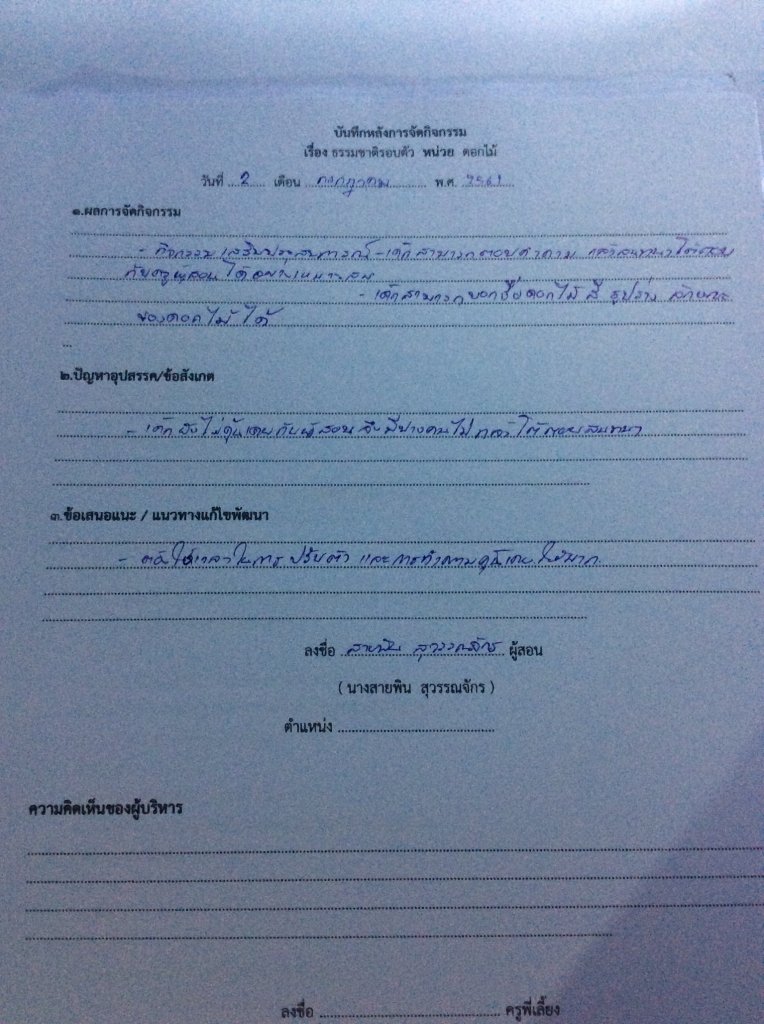 บันทึกหลังการจัดกิจกรรม
เรื่อง ธรรมชาติรอบตัว หน่วย ดอกไม้
วันที่ ...2..... เดือน ...กรกฎาคม........... พ.ศ. ..2561....
๑.ผลการจัดกิจกรรม
- กิจกรรมเสริมประสบการณ์ - เด็กสามารถตอบคำถาม และสนทนาโต้ตอบ
กับครูผู้สอนได้อย่างเหมาะสม
- เด็กสามารถบอกชื่อดอกไม้ สี รูปร่าง ลักษณะ
ของดอกไม้ได้
...
๒.ปัญหาอุปสรรค/ข้อสังเกต
- เด็กยังไม่คุ้นเคยกับผู้สอน จึงมีบางคนไม่กล้าโต้ตอบสนทนา
๓.ข้อเสนอแนะ / แนวทางแก้ไขพัฒนา
- ต้องใช้เวลาในการปรับตัว และการทำความคุ้นเคยให้มาก
ลงชื่อ สายพิน สุวรรณจักร ผู้สอน
( นางสายพิน สุวรรณจักร )
ตำแหน่ง ................................................
ความคิดเห็นของผู้บริหาร
ลงชื่อ ................................................ ครูพี่เลี้ยง